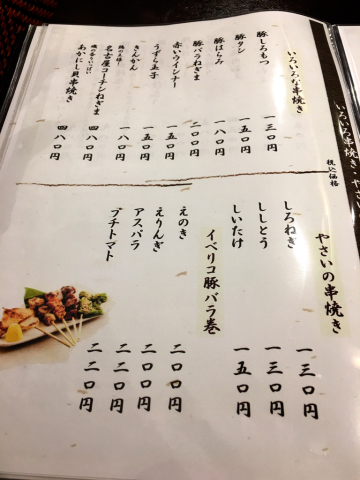 いろいろな串焼き
豚しろもつ 一三〇円
豚タン 一五〇円
豚はらみ 一八〇円
豚バラねぎま 二〇〇円
赤いウインナー 一五〇円
うずら玉子 一五〇円
きんかん 一八〇円
名古屋コーチンねぎま 四八〇円
あかにし貝串焼き 四八〇円
税込価格
やさいの串焼き
しろねぎ 一三〇円
ししとう 一三〇円
しいたけ 一五〇円
イベリコ豚バラ巻
えのき 二〇〇円
えりんぎ 二〇〇円
アスパラ 二二〇円
プチトマト 二二〇円
いろいろな串焼き・やさ